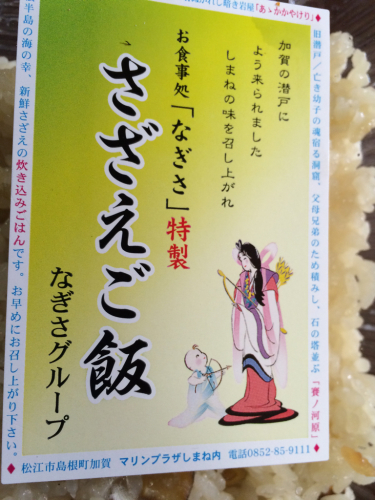 れし暗き岩屋「あゝかかやけり」
旧潜戸/亡き幼子の魂宿る洞窟、父母兄弟のため積みし、石の塔並ぶ「賽ノ河原」
加賀の潜戸に
よう来られました
しまねの味を召し上がれ
お食事処「なぎさ」特製
さざえご飯
なぎさグループ
半島の海の幸、新鮮さざえの炊き込みごはんです。お早めにお召し上がり下さい。
松江市島根町加賀 マリンプラザしまね内 電話0852-85-9111